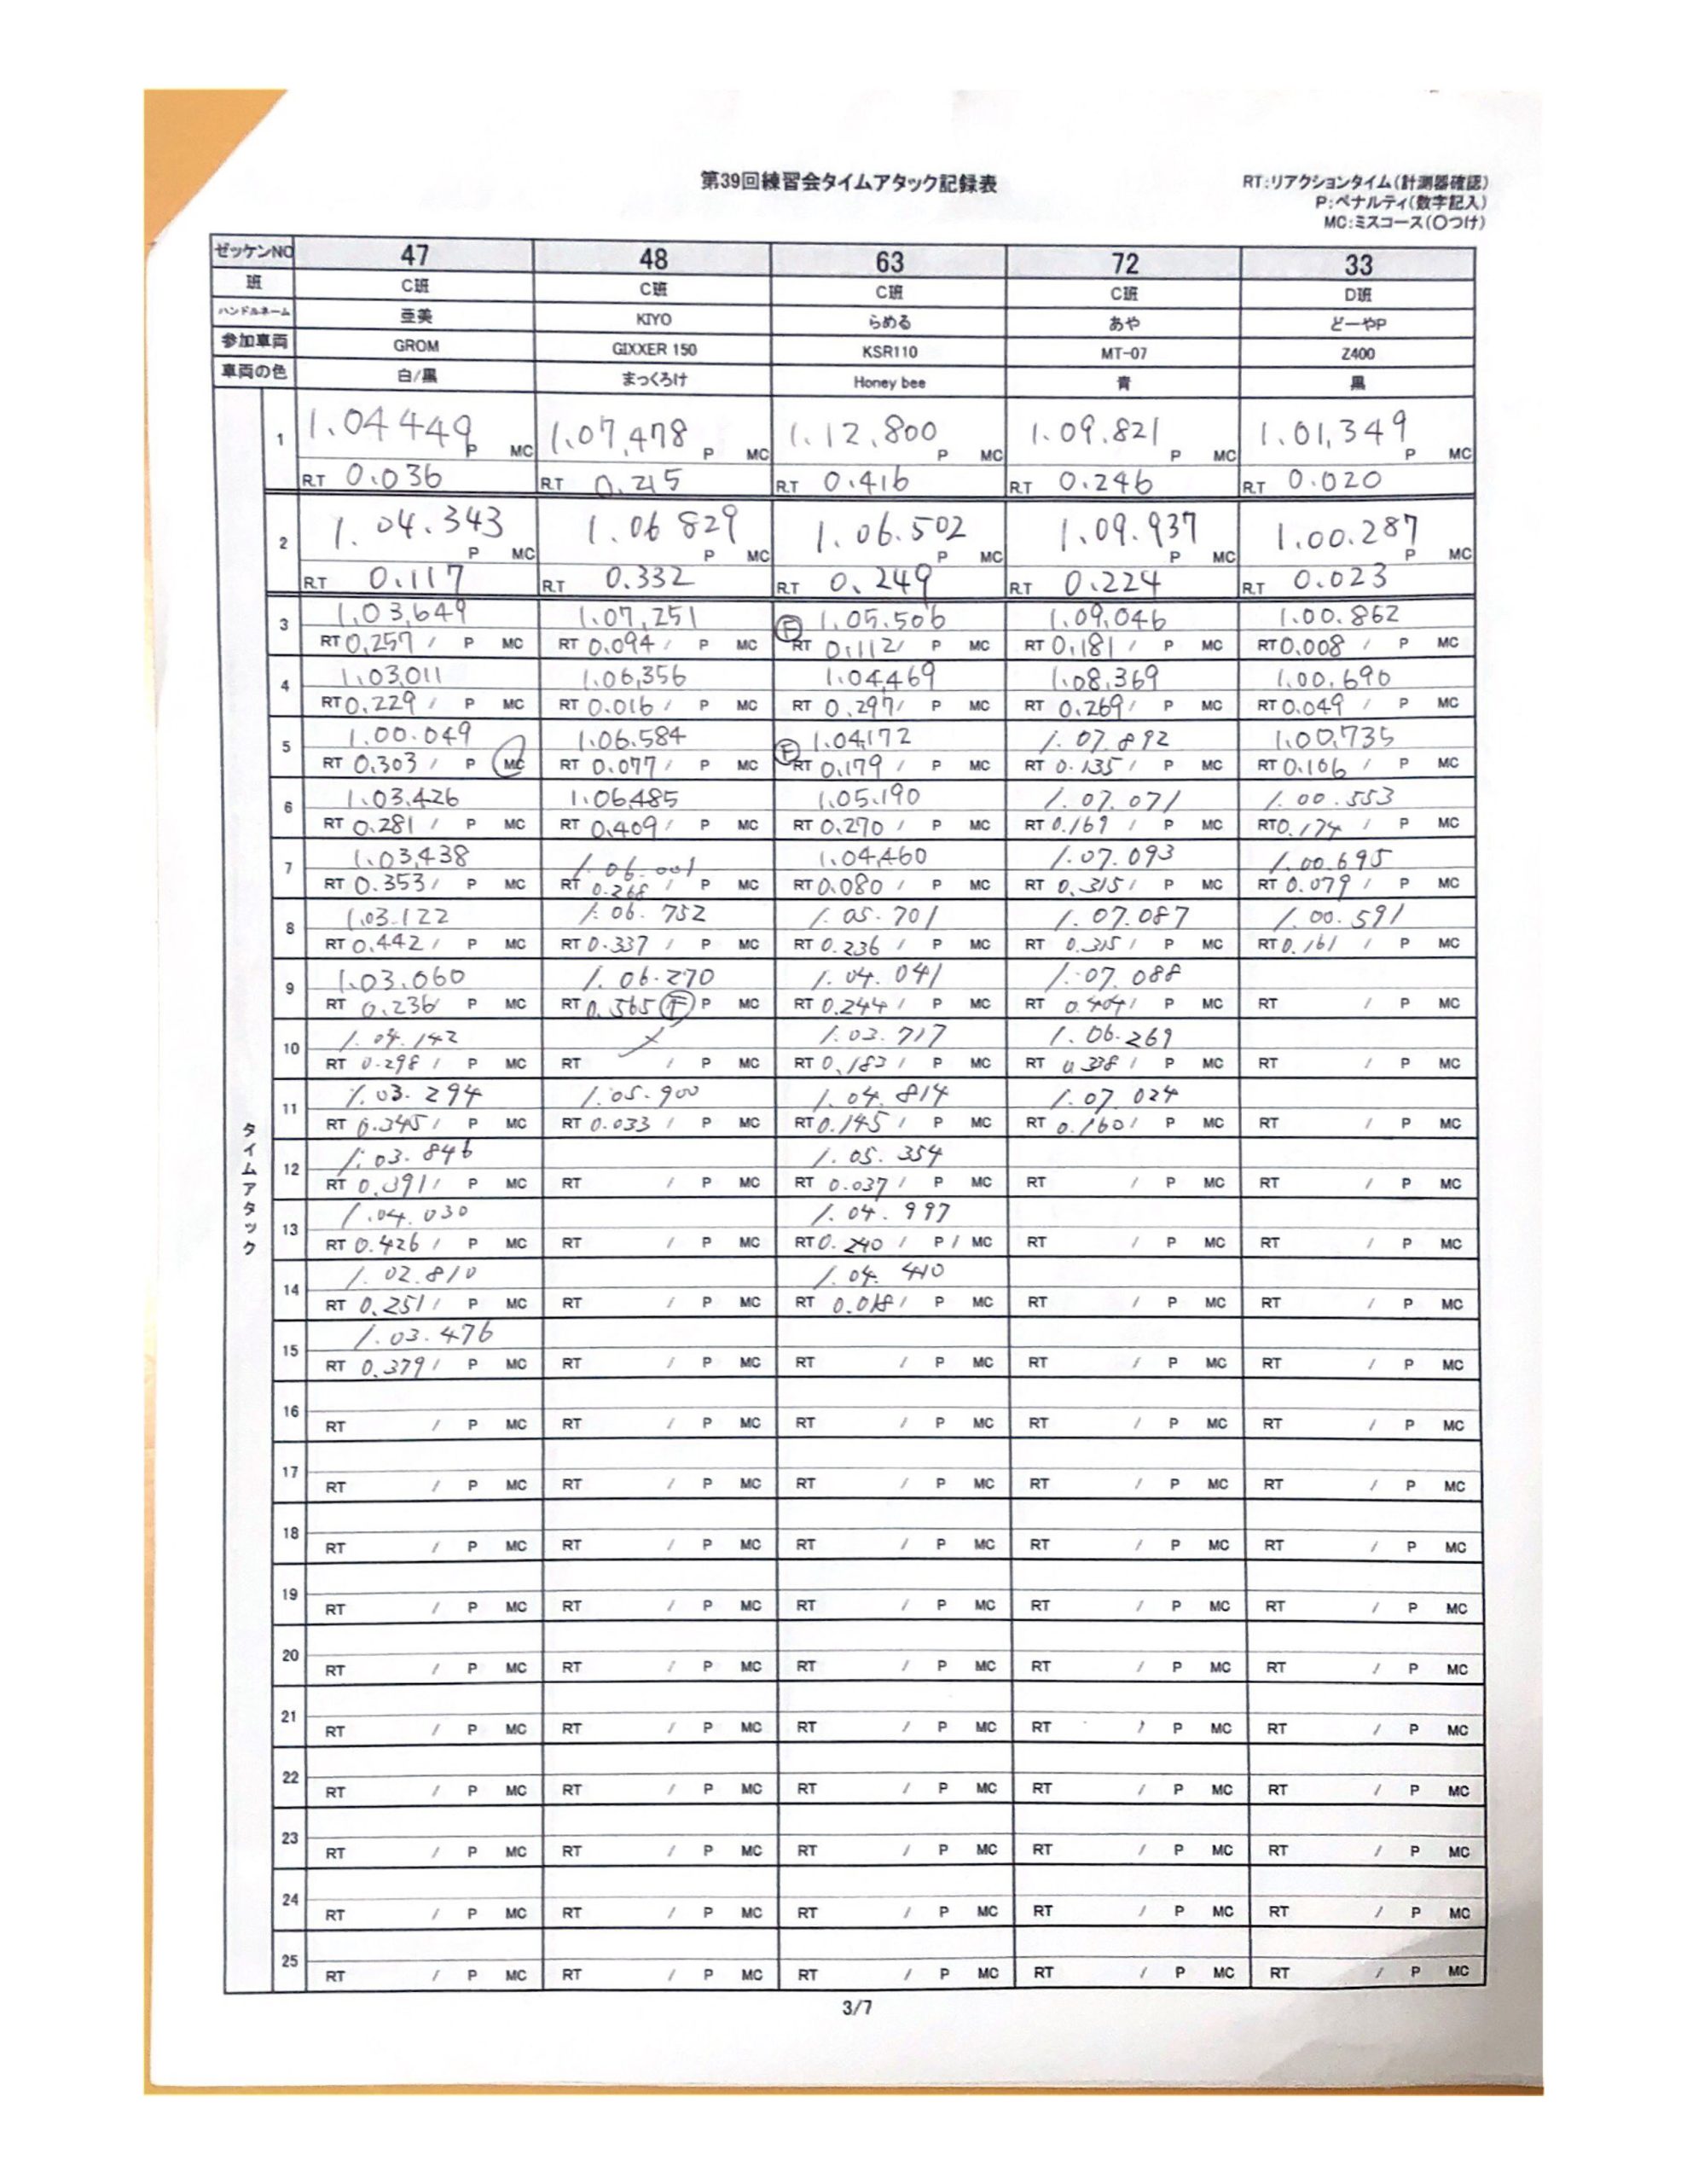 第39回練習会タイムアタック記録表
RT:リアクションタイム(計測器確認)
P:ペナルティ(数字記入)
MC:ミスコース(〇つけ)
ゼッケンNO 47 48 63 72 33
班 C班 C班 C班 C班 D班
ハンドルネーム 亜美 KIYO らめる あや どーやP
参加車両 GROM GIXXER 150 KSR110 MT-07 Z400
車両の色 白/黒 まっくろけ Honey bee 青 黒
タイムアタック
1 1.04449 P MC 1.07,478 P MC 1.12.800 P MC 1.09.821 P MC 1.01,349 P MC
RT 0.036 RT 0.215 RT 0.416 RT 0.246 RT 0.020
2 1.04.343 P MC 1.06 829 P MC 1.06.502 P MC 1.09.937 P MC 1.00.287 P MC
RT 0.117 RT 0.332 RT 0.249 RT 0.224 RT 0.023
3 1.03,649 1.07,251 Ⓕ 1.05.506 1.09,046 1.00.862
RT 0,257 / P MC RT 0.094 / P MC RT 0.112 / P MC RT 0.181 / P MC RT 0.008 / P MC
4 1.03,011 1.06,356 1.04,469 1.08,369 1.00.690
RT 0.229 / P MC RT 0.016 / P MC RT 0.297 / P MC RT 0.269 / P MC RT 0.049 / P MC
5 1.00.049 1.06.584 Ⓕ 1.04,172 1.07.892 1.00,735
RT 0.303 / P MC RT 0.077 / P MC RT 0.179 / P MC RT 0.135 / P MC RT 0.106 / P MC
6 1.03.426 1.06485 1.05.190 1.07.071 1.00.553
RT 0.281 / P MC RT 0.409 / P MC RT 0.270 / P MC RT 0.169 / P MC RT 0.174 / P MC
7 1.03,438 1.06.001 1.04,460 1.07.093 1.00.695
RT 0.353 / P MC RT 0.268 / P MC RT 0.080 / P MC RT 0.315 / P MC RT 0.079 / P MC
8 1.03.122 1.06.752 1.05.701 1.07.087 1.00.591
RT 0.442 / P MC RT 0.337 / P MC RT 0.236 / P MC RT 0.315 / P MC RT 0.161 / P MC
9 1.03.060 1.06.270 1.04.041 1.07.088
RT 0.236 / P MC RT 0.565 Ⓕ P MC RT 0.244 / P MC RT 0.404 / P MC RT / P MC
10 1.04.142 1.03.717 1.06.269
RT 0.298 / P MC RT / P MC RT 0.183 / P MC RT 0.338 / P MC RT / P MC
11 1.03.294 1.05.900 1.04.814 1.07.024
RT 0.345 / P MC RT 0.033 / P MC RT 0.145 / P MC RT 0.160 / P MC RT / P MC
12 1.03.846 1.05.354
RT 0.391 / P MC RT / P MC RT 0.037 / P MC RT / P MC RT / P MC
13 1.04.030 1.04.997
RT 0.426 / P MC RT / P MC RT 0.240 / P 1 MC RT / P MC RT / P MC
14 1.02.810 1.04.410
RT 0.251 / P MC RT / P MC RT 0.018 / P MC RT / P MC RT / P MC
15 1.03.476
RT 0.379 / P MC RT / P MC RT / P MC RT / P MC RT / P MC
16
RT / P MC RT / P MC RT / P MC RT / P MC RT / P MC
17
RT / P MC RT / P MC RT / P MC RT / P MC RT / P MC
18
RT / P MC RT / P MC RT / P MC RT / P MC RT / P MC
19
RT / P MC RT / P MC RT / P MC RT / P MC RT / P MC
20
RT / P MC RT / P MC RT / P MC RT / P MC RT / P MC
21
RT / P MC RT / P MC RT / P MC RT / P MC RT / P MC
22
RT / P MC RT / P MC RT / P MC RT / P MC RT / P MC
23
RT / P MC RT / P MC RT / P MC RT / P MC RT / P MC
24
RT / P MC RT / P MC RT / P MC RT / P MC RT / P MC
25
RT / P MC RT / P MC RT / P MC RT / P MC RT / P MC
3/7